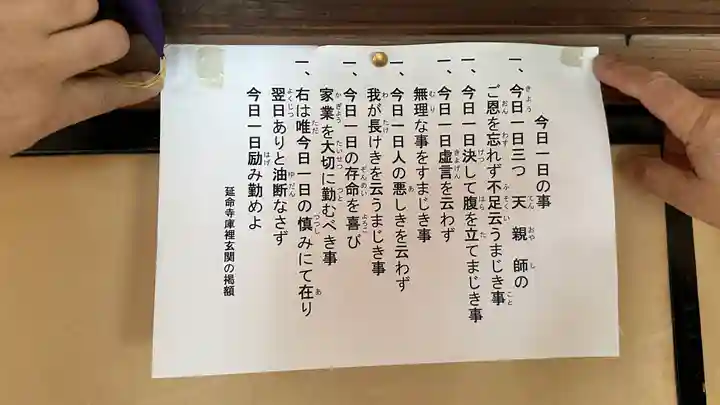 今日一日の事
一、今日一日三つ　天　親　師の
ご恩を忘れず不足云うまじき事
一、今日一日決して腹を立てまじき事
一、今日一日虚言を云わず
無理な事をすまじき事
一、今日一日人の悪しきを云わず
我が長けきを云うまじき事
一、今日一日の存命を喜び
家業を大切に勤むべき事
一、右は唯今日一日の慎みにて在り
翌日ありと油断なさず
今日一日励み勤めよ
延命寺庫裡玄関の掲額